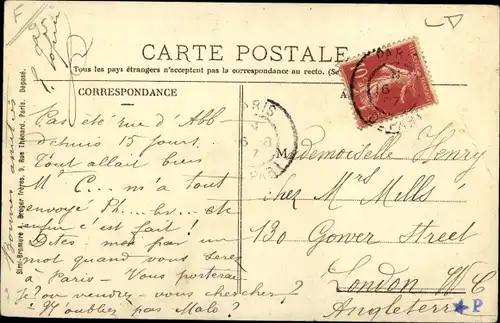 CARTE POSTALE
Tous les pays étrangers n'acceptent pas la correspondance au recto. (Se
CORRESPONDANCE
Pas été rue d'Abb -
depuis 15 jours.
Tout allait bien
Mr C... m'a tout
envoyé Ph... br... etc
enfin c'est fait !
Dites - moi par un
mot quand vous serez
à Paris - Vous porterai
je ? ou vendrez - vous chercher ?
N'oubliez pas Malo ?
Bonnes amitiés
Simi-Bromure A. Breger frères, 9, Rue Thénard, Paris. Déposé.
PARIS
Mademoiselle Henry
chez Mrs Mells
130 Gower Street
London W C
Angleterre
P